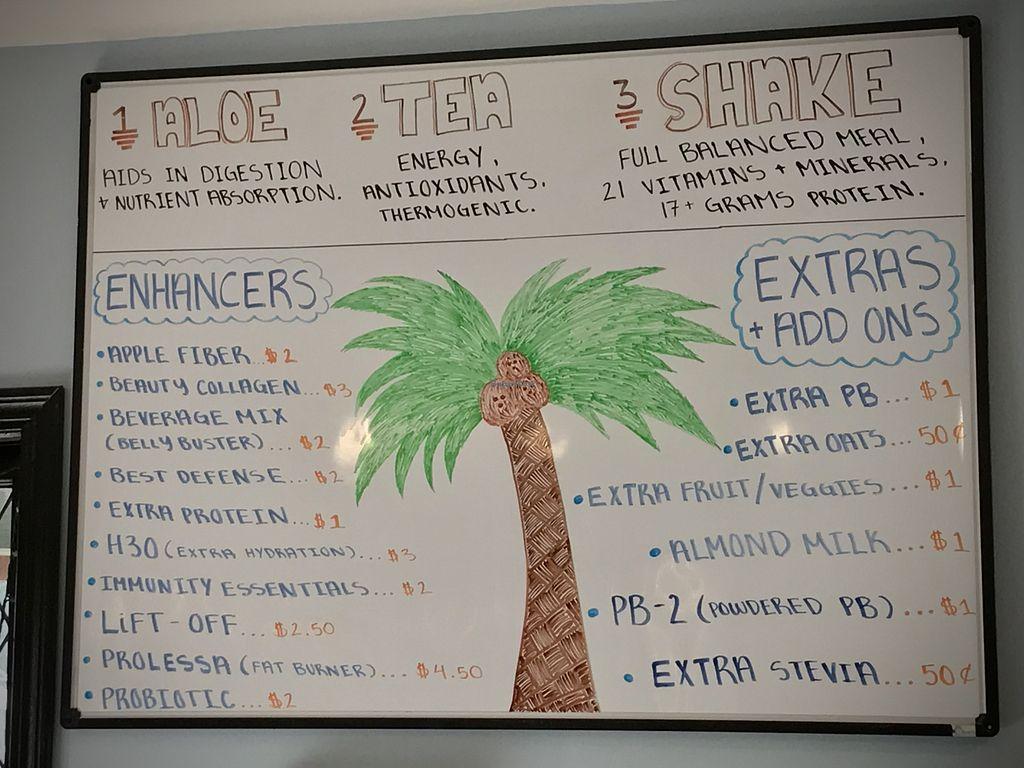 1 ALOE
AIDS IN DIGESTION
+ NUTRIENT ABSORPTION.
2 TEA
ENERGY,
ANTIOXIDANTS,
THERMOGENIC.
3 SHAKE
FULL BALANCED MEAL,
21 VITAMINS + MINERALS,
17+ GRAMS PROTEIN.
ENHANCERS
• APPLE FIBER... $2
• BEAUTY COLLAGEN... $3
• BEVERAGE MIX
(BELLY BUSTER)... $2
• BEST DEFENSE... $2
• EXTRA PROTEIN... $1
• H30 (EXTRA HYDRATION)... $3
• IMMUNITY ESSENTIALS... $2
• LiFT-OFF... $2.50
• PROLESSA (FAT BURNER)... $4.50
• PROBIOTIC... $2
EXTRAS
+ ADD ONS
• EXTRA PB... $1
• EXTRA OATS... 50¢
• EXTRA FRUIT/VEGGIES... $1
• ALMOND MILK... $1
• PB-2 (POWDERED PB)... $1
• EXTRA STEVIA... 50¢